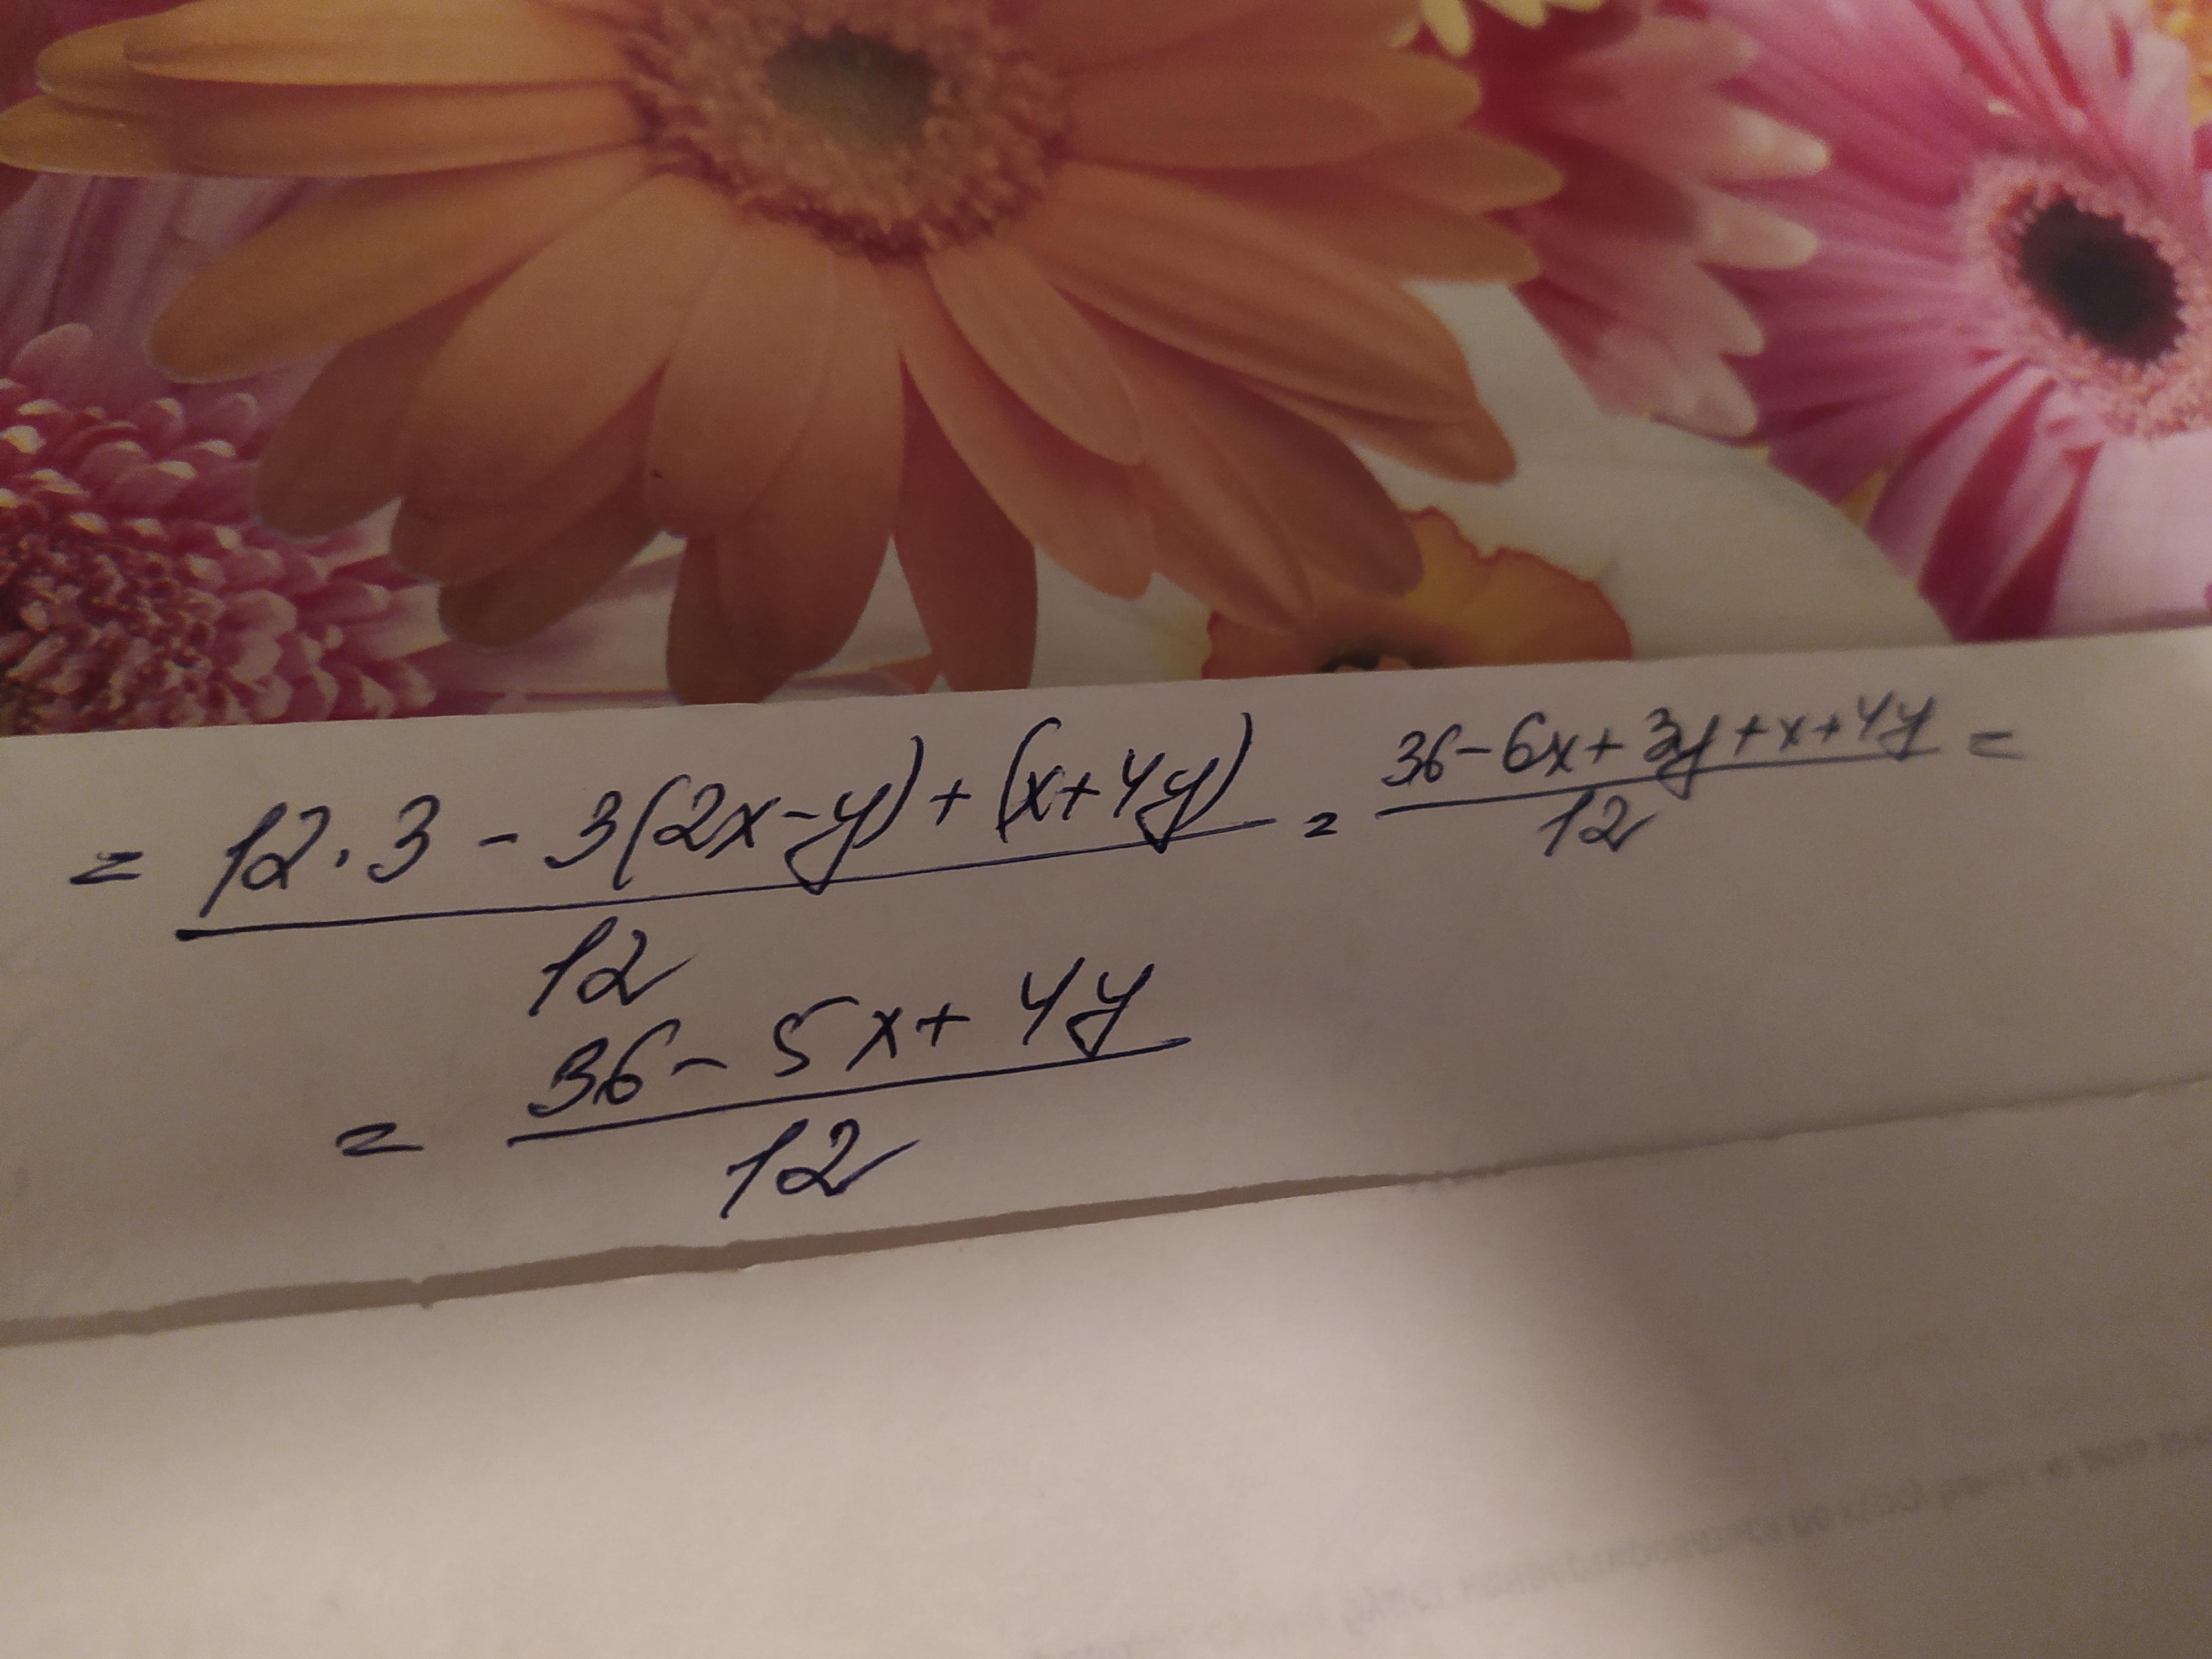 = (12·3 - 3(2x-y) + (x+4y))/12 = (36-6x+3y+x+4y)/12 =
= (36-5x+4y)/12